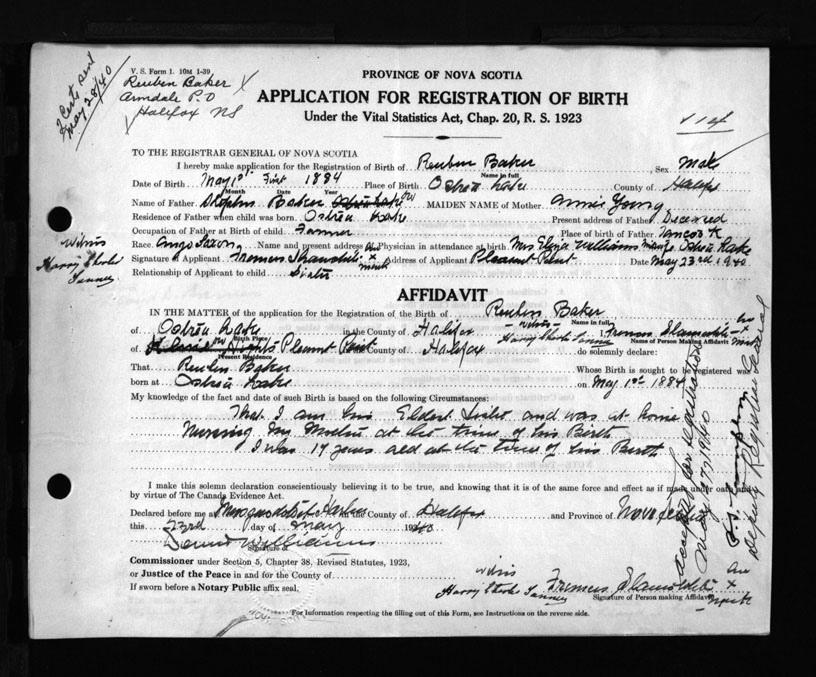 V. S. Form 1. 10M 1-39
2 Certs sent
May 28/40
Reuben Baker X
Armdale P.O
Halifax NS
PROVINCE OF NOVA SCOTIA
APPLICATION FOR REGISTRATION OF BIRTH
Under the Vital Statistics Act, Chap. 20, R. S. 1923
TO THE REGISTRAR GENERAL OF NOVA SCOTIA
I hereby make application for the Registration of Birth of Reuben Baker Sex Male
Name in full
Date of Birth May 1st First 1884 Place of Birth Ostrea Lake County of Halifax
Month Date Year
Name of Father Stephen Baker MAIDEN NAME of Mother Annie Young
Residence of Father when child was born Ostrea Lake Present address of Father Deceased
Occupation of Father at Birth of Child Farmer Place of birth of Father Tancook
Race Anglo Saxon Name and present address of Physician in attendance at birth Mrs Eliza Williams Ostrea Lake
Signature of Applicant X mark Address of Applicant Pleasant Point Date May 23rd 1940
Relationship of Applicant to child Sister
witnis
Harry
AFFIDAVIT
IN THE MATTER of the application for the Registration of the Birth of Reuben Baker
Name in full
of Ostrea Lake in the County of Halifax I,
Birth Place
Name of Person Making Affidavit
of Pleasant Point County of Halifax do solemnly declare:
Present Residence
That Reuben Baker Whose Birth is sought to be registered was
born at Ostrea Lake on May 1st 1884
My knowledge of the fact and date of such Birth is based on the following Circumstances:
That I am his Eldest Sister and was at home
Nursing My Mother at the time of his Birth
I was 17 years old at the time of his Birth
I make this solemn declaration conscientiously believing it to be true, and knowing it is of the same force and effect as if made under oath and
by virtue of The Canada Evidence Act.
Declared before me at Musquodoboit Harbor in the County of Halifax and Province of Nova Scotia
this 23rd day of May 1940
Williams
Signature of
Commissioner under Section 5, Chapter 38, Revised Statutes, 1923,
or Justice of the Peace in and for the County of
If sworn before a Notary Public affix seal.
witnis
Harry
X
mark
Signature of Person making Affidavit
For Information respecting the filling out of this Form, see Instructions on the reverse side.
Accepted for registration
May 27 1940
Deputy Registrar General